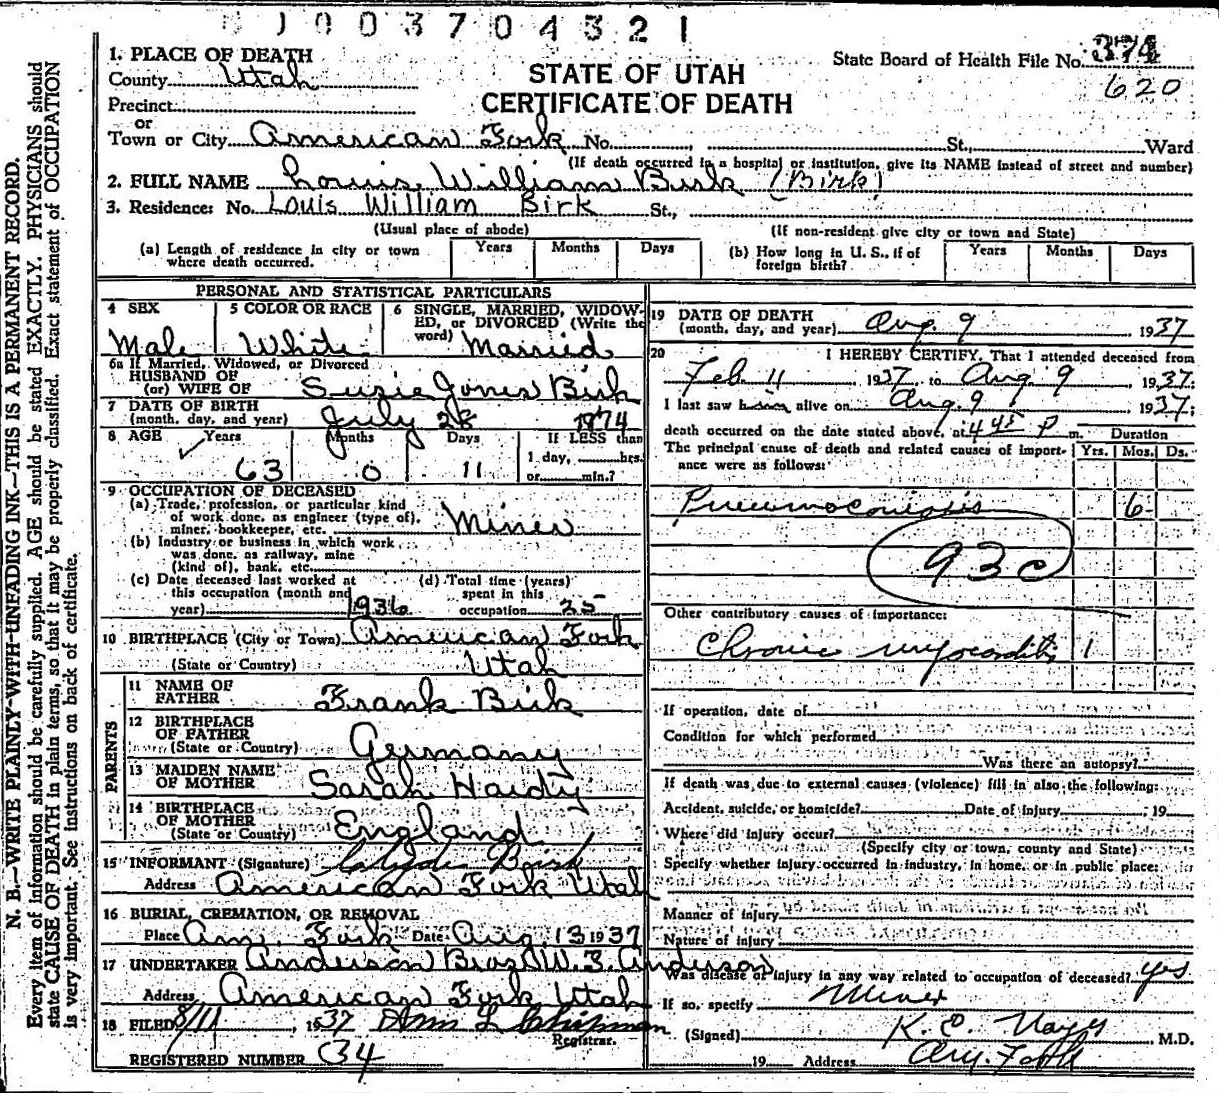 003704321
1. PLACE OF DEATH
County Utah
Precinct
or
Town or City American Fork No. , St., Ward
STATE OF UTAH
CERTIFICATE OF DEATH
State Board of Health File No.
620
(If death occurred in a hospital or institution, give its NAME instead of street and number)
2. FULL NAME Louis William Burk (Birk)
3. Residence: No. Louis William Birk St.,
(Usual place of abode) (If non-resident give city or town and State)
(a) Length of residence in city or town where death occurred. Years Months Days
(b) How long in U. S., if of foreign birth? Years Months Days
PERSONAL AND STATISTICAL PARTICULARS
4 SEX
Male
5 COLOR OR RACE
White
6 SINGLE, MARRIED, WIDOWED, or DIVORCED (Write the word)
Married
6a If Married, Widowed, or Divorced
HUSBAND OF
(or) WIFE OF Susie Jones Birk
7 DATE OF BIRTH
(month, day, and year) July 28 1874
8 AGE Years Months Days If LESS than
63 0 11 1 day, hrs.
or min.?
9 OCCUPATION OF DECEASED
(a) Trade, profession, or particular kind
of work done, as engineer (type of),
miner, bookkeeper, etc. Miner
(b) Industry or business in which work
was done, as railway, mine
(kind of), bank, etc.
(c) Date deceased last worked at
this occupation (month and
year) 1936
(d) Total time (years)
spent in this
occupation 25
10 BIRTHPLACE (City or Town) American Fork
(State or Country) Utah
PARENTS
11 NAME OF
FATHER Frank Birk
12 BIRTHPLACE
OF FATHER
(State or Country) Germany
13 MAIDEN NAME
OF MOTHER Sarah Hardy
14 BIRTHPLACE
OF MOTHER
(State or Country) England
15 INFORMANT (Signature) Birk
Address American Fork Utah
16 BURIAL, CREMATION, OR REMOVAL
Place Am. Fork Date Aug. 13 1937
17 UNDERTAKER Anderson Bros W. S. Anderson
Address American Fork Utah
18 FILED 8/11, 1937 Ann L Chipman
Registrar.
REGISTERED NUMBER 34
19 DATE OF DEATH
(month, day, and year) Aug. 9 1937
20 I HEREBY CERTIFY, That I attended deceased from
Feb. 11 1937 to Aug. 9, 1937;
I last saw alive on Aug. 9 1937;
death occurred on the date stated above, at 4 45 P m. Duration
The principal cause of death and related causes of importance were as follows: Yrs. Mos. Ds.
Pneumoconiosis 6
93c
Other contributory causes of importance:
Chronic myocarditis 1
If operation, date of
Condition for which performed
Was there an autopsy?
If death was due to external causes (violence) fill in also the following:
Accident, suicide, or homicide? Date of injury , 19
Where did injury occur?
(Specify city or town, county and State)
Specify whether injury occurred in industry, in home, or in public place:
Manner of injury
Nature of injury
Was disease or injury in any way related to occupation of deceased? yes
If so, specify Miner
(Signed) K. E. , M.D.
19 Address Am. Fork
N. B.—WRITE PLAINLY—WITH UNFADING INK—THIS IS A PERMANENT RECORD.
Every item of information should be carefully supplied. AGE should be stated EXACTLY. PHYSICIANS should
state CAUSE OF DEATH in plain terms, so that it may be properly classified. Exact statement of OCCUPATION
is very important. See instructions on back of certificate.